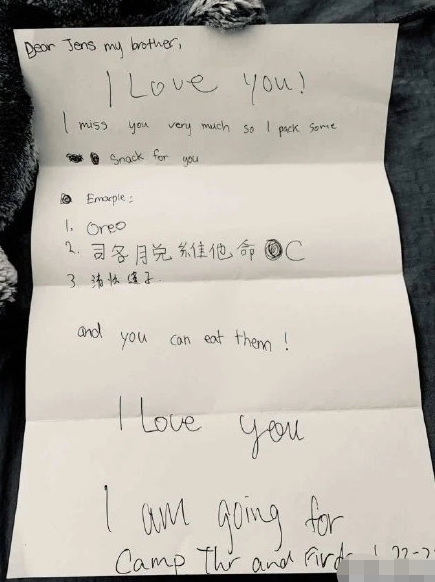 Dear Jens my brother,
I Love you!
I miss you very much so I pack some
Snack for you
Emaple:
1. Oreo
2. 司各月兌維他命 C
3.
and you can eat them !
I Love you
I am going for
Camp Thr and